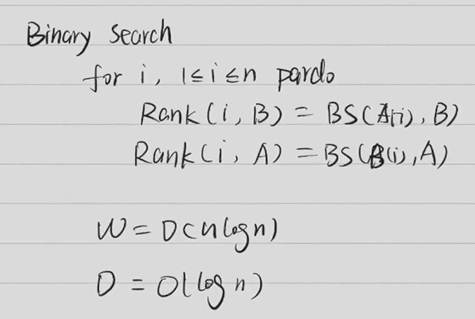 Binary Search
for i, 1≤i≤n pardo
Rank(i, B) = BS(A(i), B)
Rank(i, A) = BS(B(i), A)
W = O(n log n)
D = O(log n)